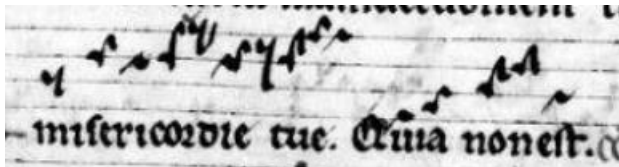 misericordie tue. Quia non est.